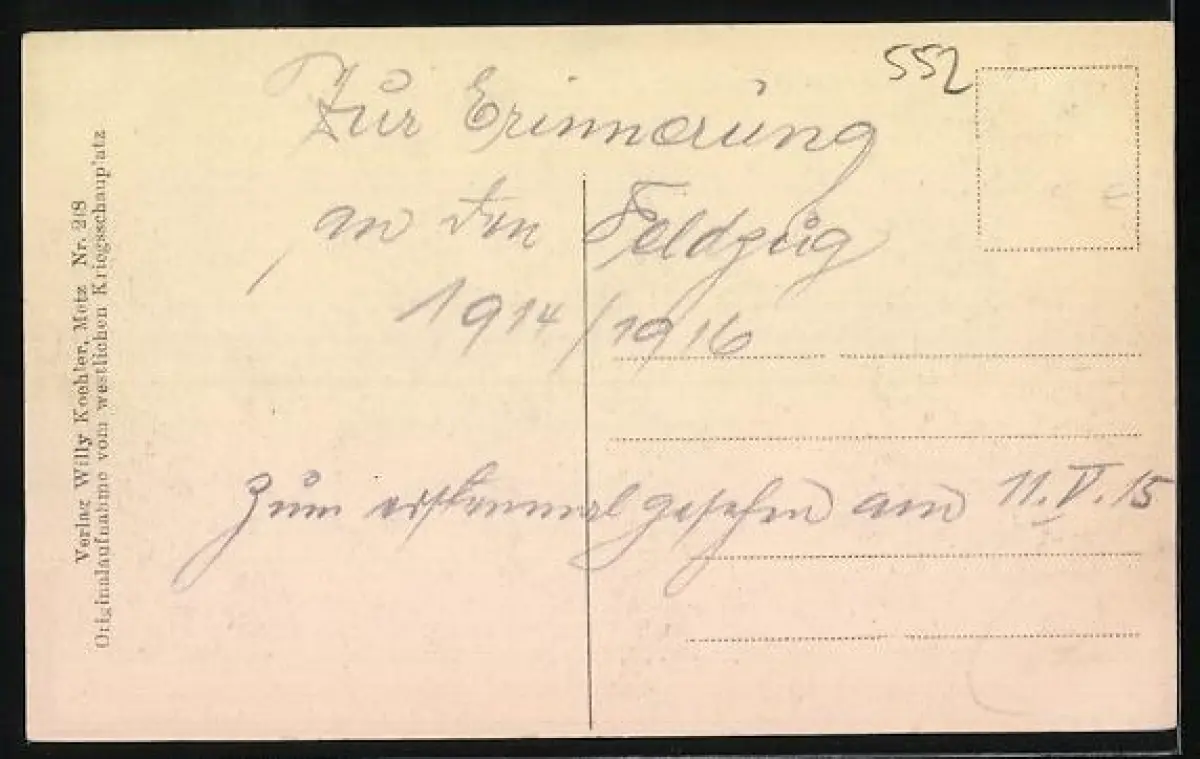 552
Zur Erinnerung
an den Feldzug
1914/1916
Zum erstenmal gesehen am 11.V.15
Verlag Willy Koehler, Metz Nr. 218
Originalaufnahme vom westlichen Kriegsschauplatz